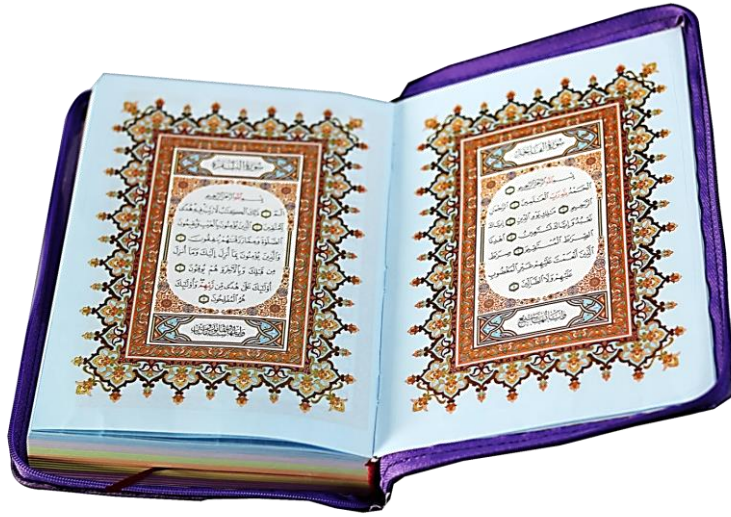 سُورَةُ الفَاتِحَةِ
بِسْمِ ٱللَّهِ ٱلرَّحْمَٰنِ ٱلرَّحِيمِ
ٱلْحَمْدُ لِلَّهِ رَبِّ ٱلْعَٰلَمِينَ ٱلرَّحْمَٰنِ
ٱلرَّحِيمِ مَٰلِكِ يَوْمِ ٱلدِّينِ إِيَّاكَ
نَعْبُدُ وَإِيَّاكَ نَسْتَعِينُ ٱهْدِنَا
ٱلصِّرَٰطَ ٱلْمُسْتَقِيمَ صِرَٰطَ
ٱلَّذِينَ أَنْعَمْتَ عَلَيْهِمْ غَيْرِ ٱلْمَغْضُوبِ
عَلَيْهِمْ وَلَا ٱلضَّآلِّينَ
سُورَةُ البَقَرَةِ
بِسْمِ ٱللَّهِ ٱلرَّحْمَٰنِ ٱلرَّحِيمِ
الٓمٓ ذَٰلِكَ ٱلْكِتَٰبُ لَا رَيْبَ فِيهِ هُدًى
لِّلْمُتَّقِينَ ٱلَّذِينَ يُؤْمِنُونَ بِٱلْغَيْبِ وَيُقِيمُونَ
ٱلصَّلَوٰةَ وَمِمَّا رَزَقْنَٰهُمْ يُنفِقُونَ
وَٱلَّذِينَ يُؤْمِنُونَ بِمَآ أُنزِلَ إِلَيْكَ وَمَآ أُنزِلَ
مِن قَبْلِكَ وَبِٱلْءَاخِرَةِ هُمْ يُوقِنُونَ
أُوْلَٰٓئِكَ عَلَىٰ هُدًى مِّن رَّبِّهِمْ وَأُوْلَٰٓئِكَ
هُمُ ٱلْمُفْلِحُونَ